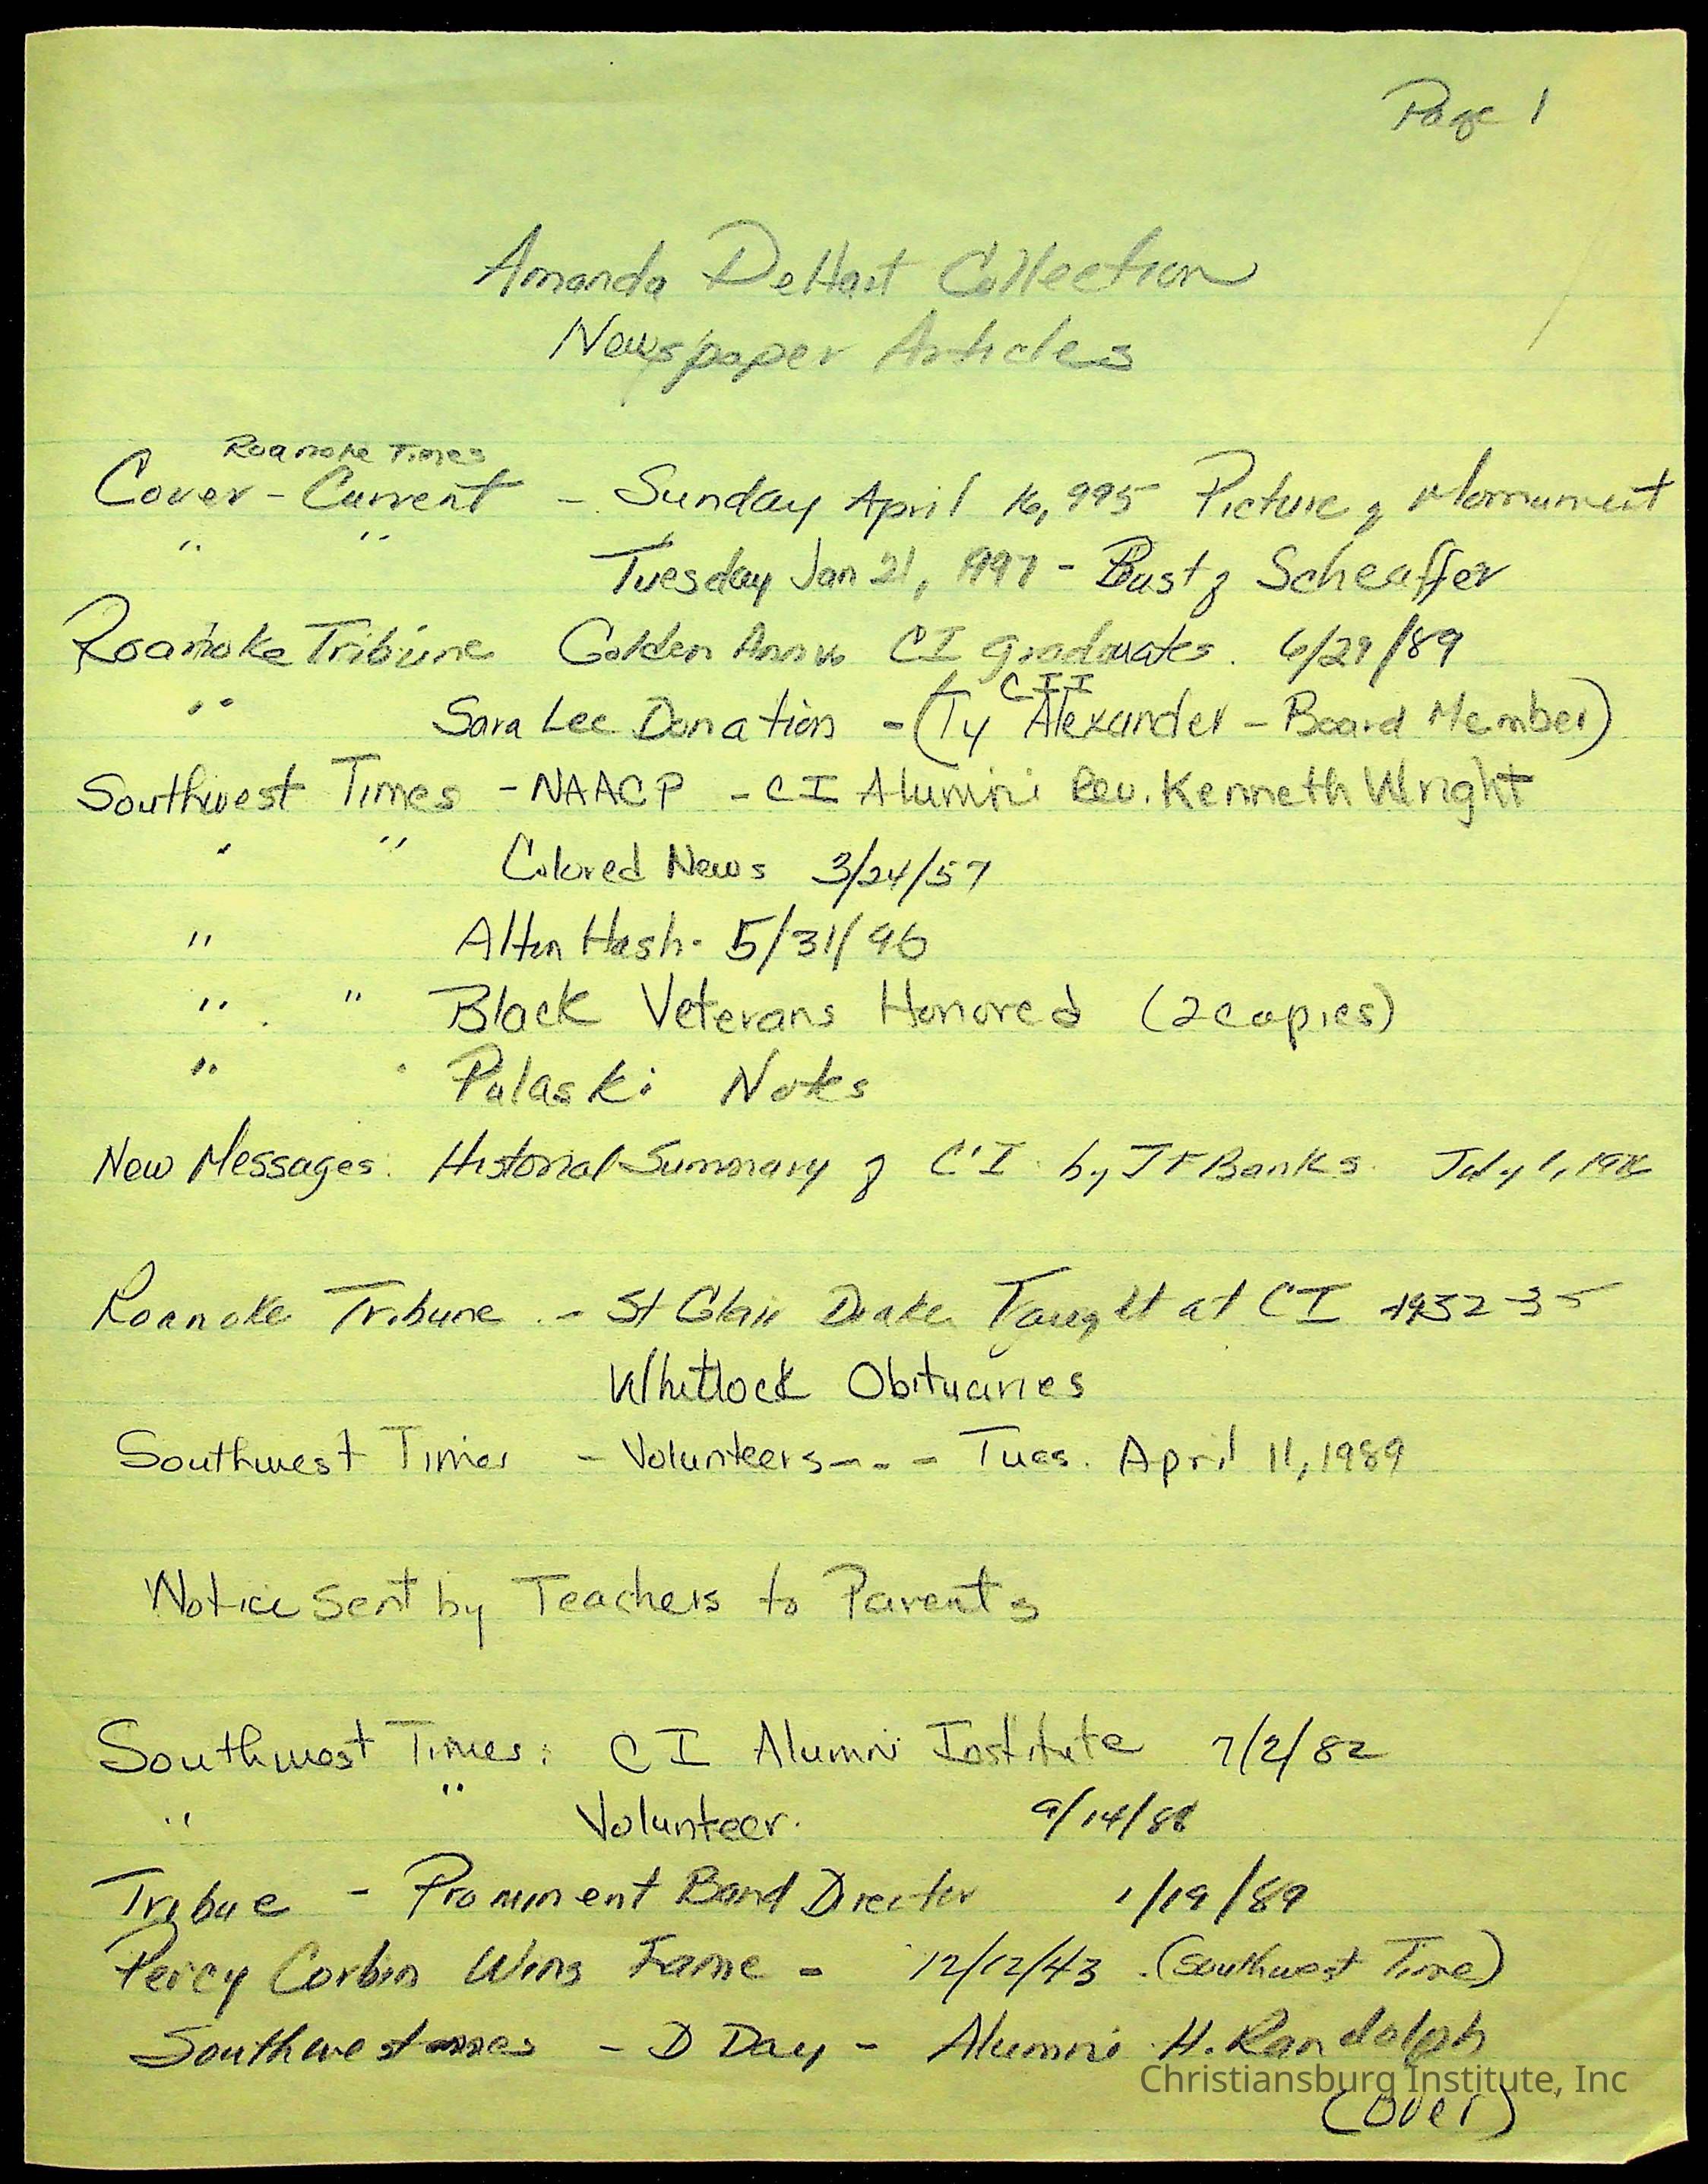 Page 1
Amanda DeHart Collection
Newspaper Articles
Roanoke Times
Cover - Current - Sunday April 16, 995 Picture of Monument
" " Tuesday Jan 21, 1997 - Bust of Scheaffer
Roanoke Tribune Golden Anniv CI graduates. 6/29/89
CII
" Sara Lee Donation - (Ty Alexander - Board Member)
Southwest Times - NAACP - CI Alumni Rev. Kenneth Wright
" " Colored News 3/24/57
" Alton Hash - 5/31/96
" " Black Veterans Honored (2 copies)
" Pulaski Notes
New Messages: Historial Summary of CI by JF Banks July 1,
Roanoke Tribune - St Clair Drake Taught at CI 1932-35
Whitlock Obituaries
Southwest Times - Volunteers - - - Tues. April 11, 1989
Notice sent by Teachers to Parents
Southwest Times: CI Alumni Institute 7/2/82
" " Volunteer. 9/14/88
Tribue - Prominent Band Director 1/19/89
Percy Corbin Wins Fame - 12/12/43 (Southwest Time)
Southwest - D Day - Alumni H. Randolph
Christiansburg Institute, Inc
(over)